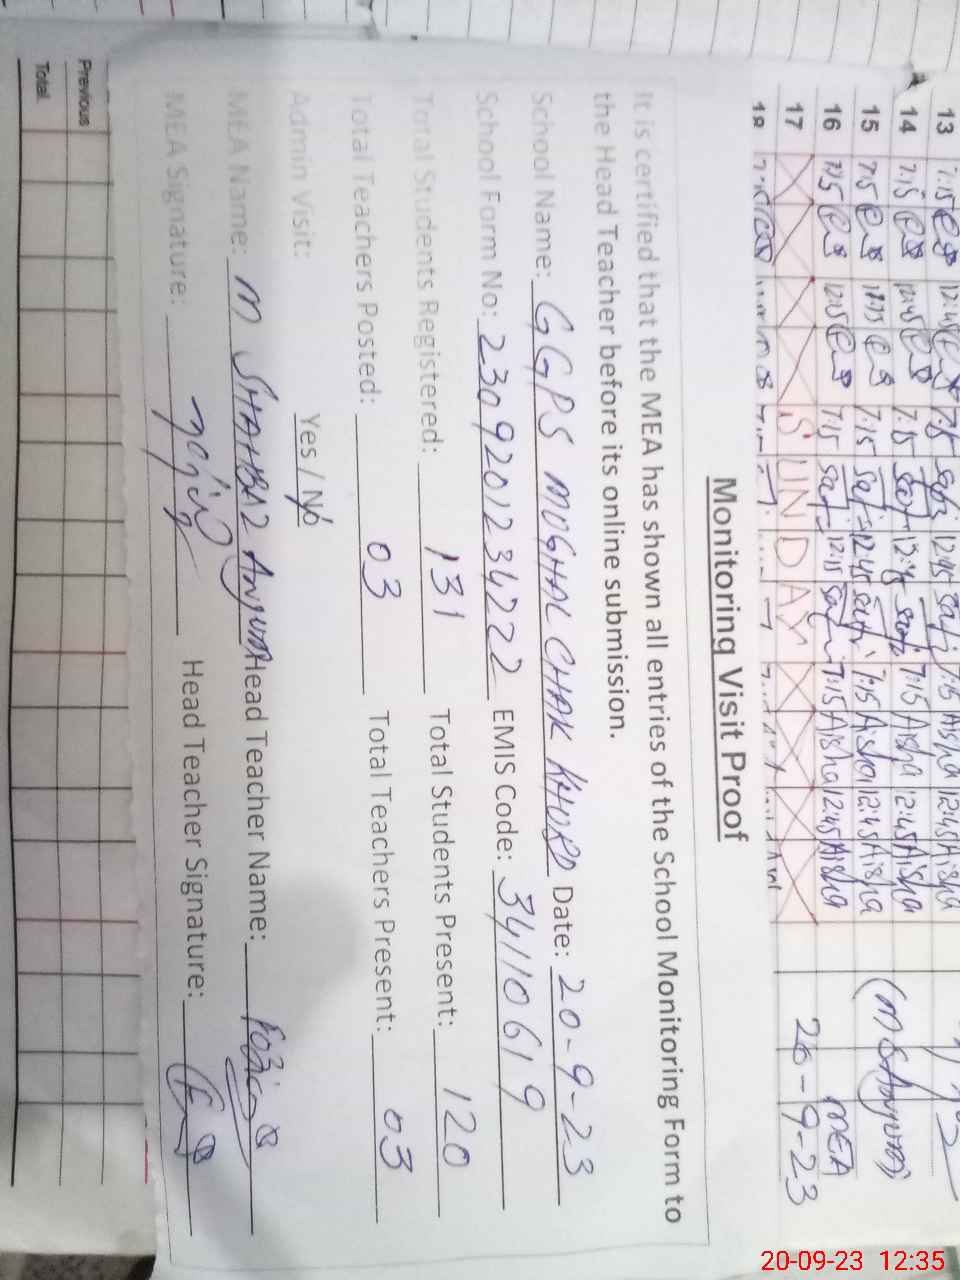 13 7:15 12:45 7:15 12:45 7:15 Aisha 12:45 Aisha
14 7:15 12:45 7:15 12:45 7:15 Aisha 12:45 Aisha
15 7:15 7:15 12:45 7:15 Aisha 12:45 Aisha
16 7:15 12:45 7:15 7:15 Aisha 12:45 Aisha
17 SUNDAY
18
MEA
20-9-23
Monitoring Visit Proof
It is certified that the MEA has shown all entries of the School Monitoring Form to
the Head Teacher before its online submission.
School Name: GGPS MUGHAL CHAK KHURD Date: 20-9-23
School Form No: 2309201234222 EMIS Code: 34110619
Total Students Registered: 131 Total Students Present: 120
Total Teachers Posted: 03 Total Teachers Present: 03
Admin Visit: Yes / No
MEA Name: M SHAHBAZ Anjum Head Teacher Name:
MEA Signature: Head Teacher Signature:
Previous
Total
20-09-23 12:35